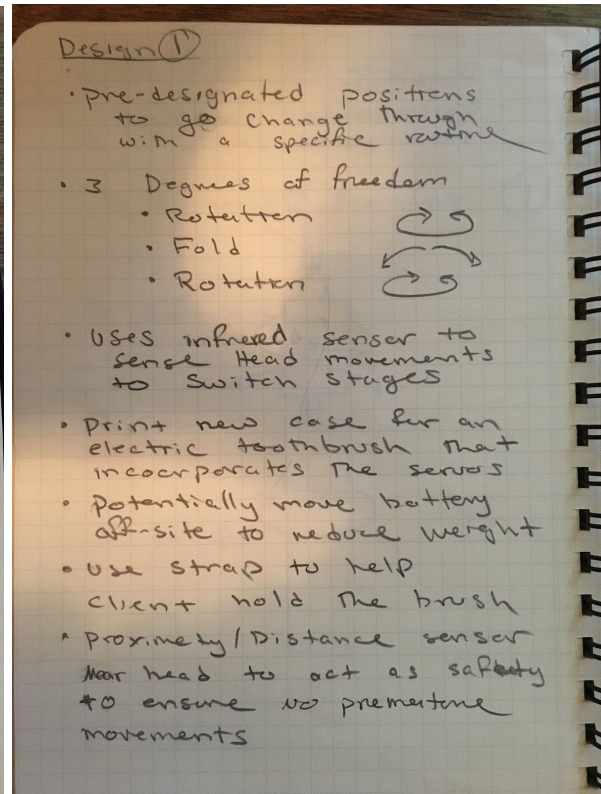 Design 1
• pre-designated positions
to go change through
with a specific routine
• 3 Degrees of freedom
• Rotation
• Fold
• Rotation
• Uses infrared sensor to
sense Head movements
to switch stages
• Print new case for an
electric toothbrush that
incoorporates the servos
• Potentially move battery
off-site to reduce weight
• use strap to help
client hold the brush
• Proximety/Distance sensor
Near head to act as safety
to ensure no premature
movements